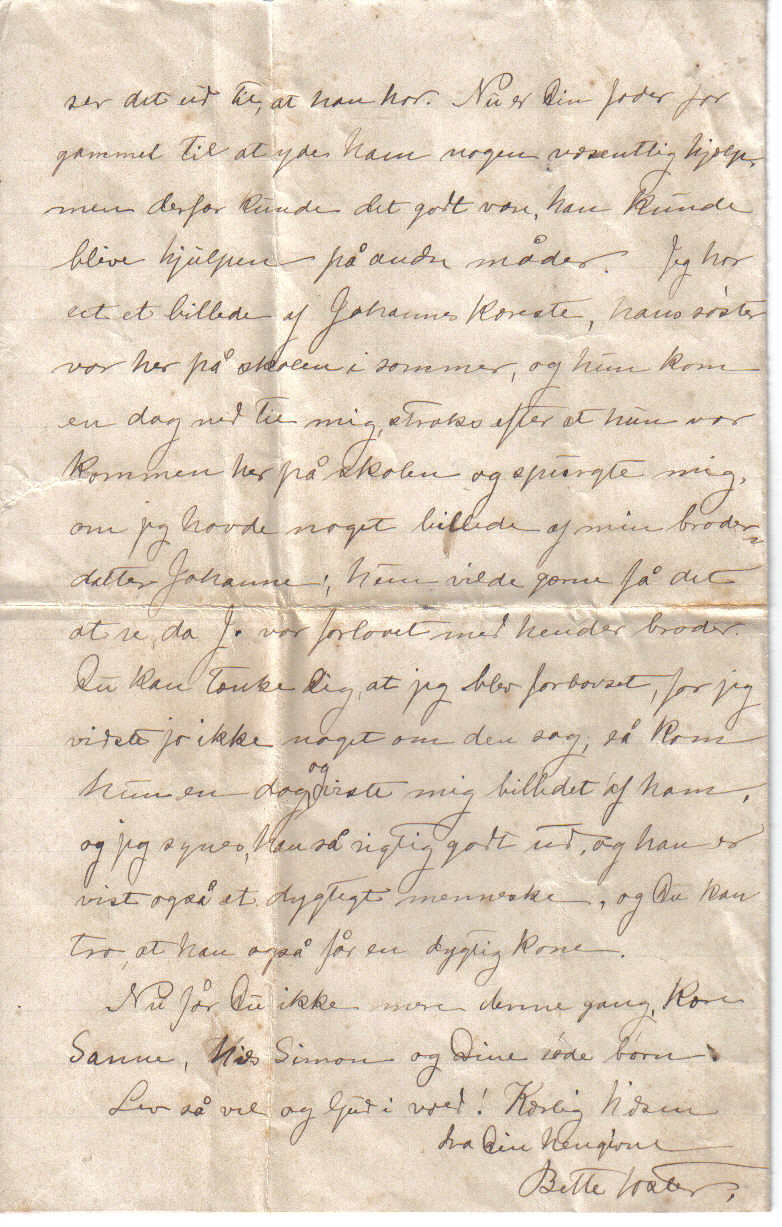 ser det ud til, at han har. Nu er Din fader for
gammel til at yde ham nogen væsentlig hjælp,
men derfor kunde det godt være, han kunde
blive hjulpen på andre måder. Jeg har
set et billede af Johannes Kæreste, hans søster
var her på skolen i sommer, og hun kom
en dag ned til mig, straks efter at hun var
kommen her på skolen og spurgte mig,
om jeg havde noget billede af min broder-
datter Johanne; hun vilde gærne få det
at se, da J. var forlovet med hendes broder.
Du kan tænke Dig, at jeg blev forbavset, for jeg
vidste jo ikke noget om den sag, så kom
hun en dag og viste mig billedet af ham,
og jeg synes, han så rigtig godt ud, og han er
vist også et dygtigt menneske, og Du kan
tro, at han også får en dygtig kone.
Nu får Du ikke mere denne gang, Kære
Sanne, Simon og Dine søde børn.
Lev så vel og Gud i vold! Kærlig hilsen
fra Din hengivne
Bette faster.